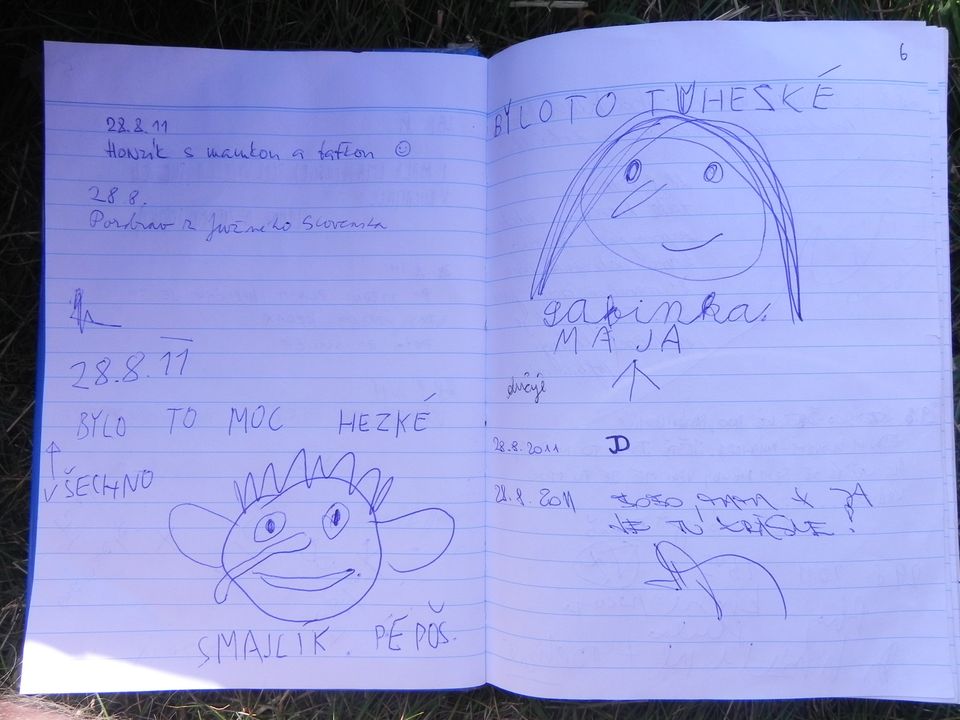 28.8.11
Honzík s mamkou a taťkou
28.8.
Pozdrav z Južného Slovenska
28.8.11
BYLO TO MOC HEZKÉ
VŠECHNO
SMAJLÍK. PÉPÓŠ.
6
BYLO TO TU HESKÉ
gabinka.
MAJA
28.8.2011 JD
28.8.2011
JE TU KRÁSNE!